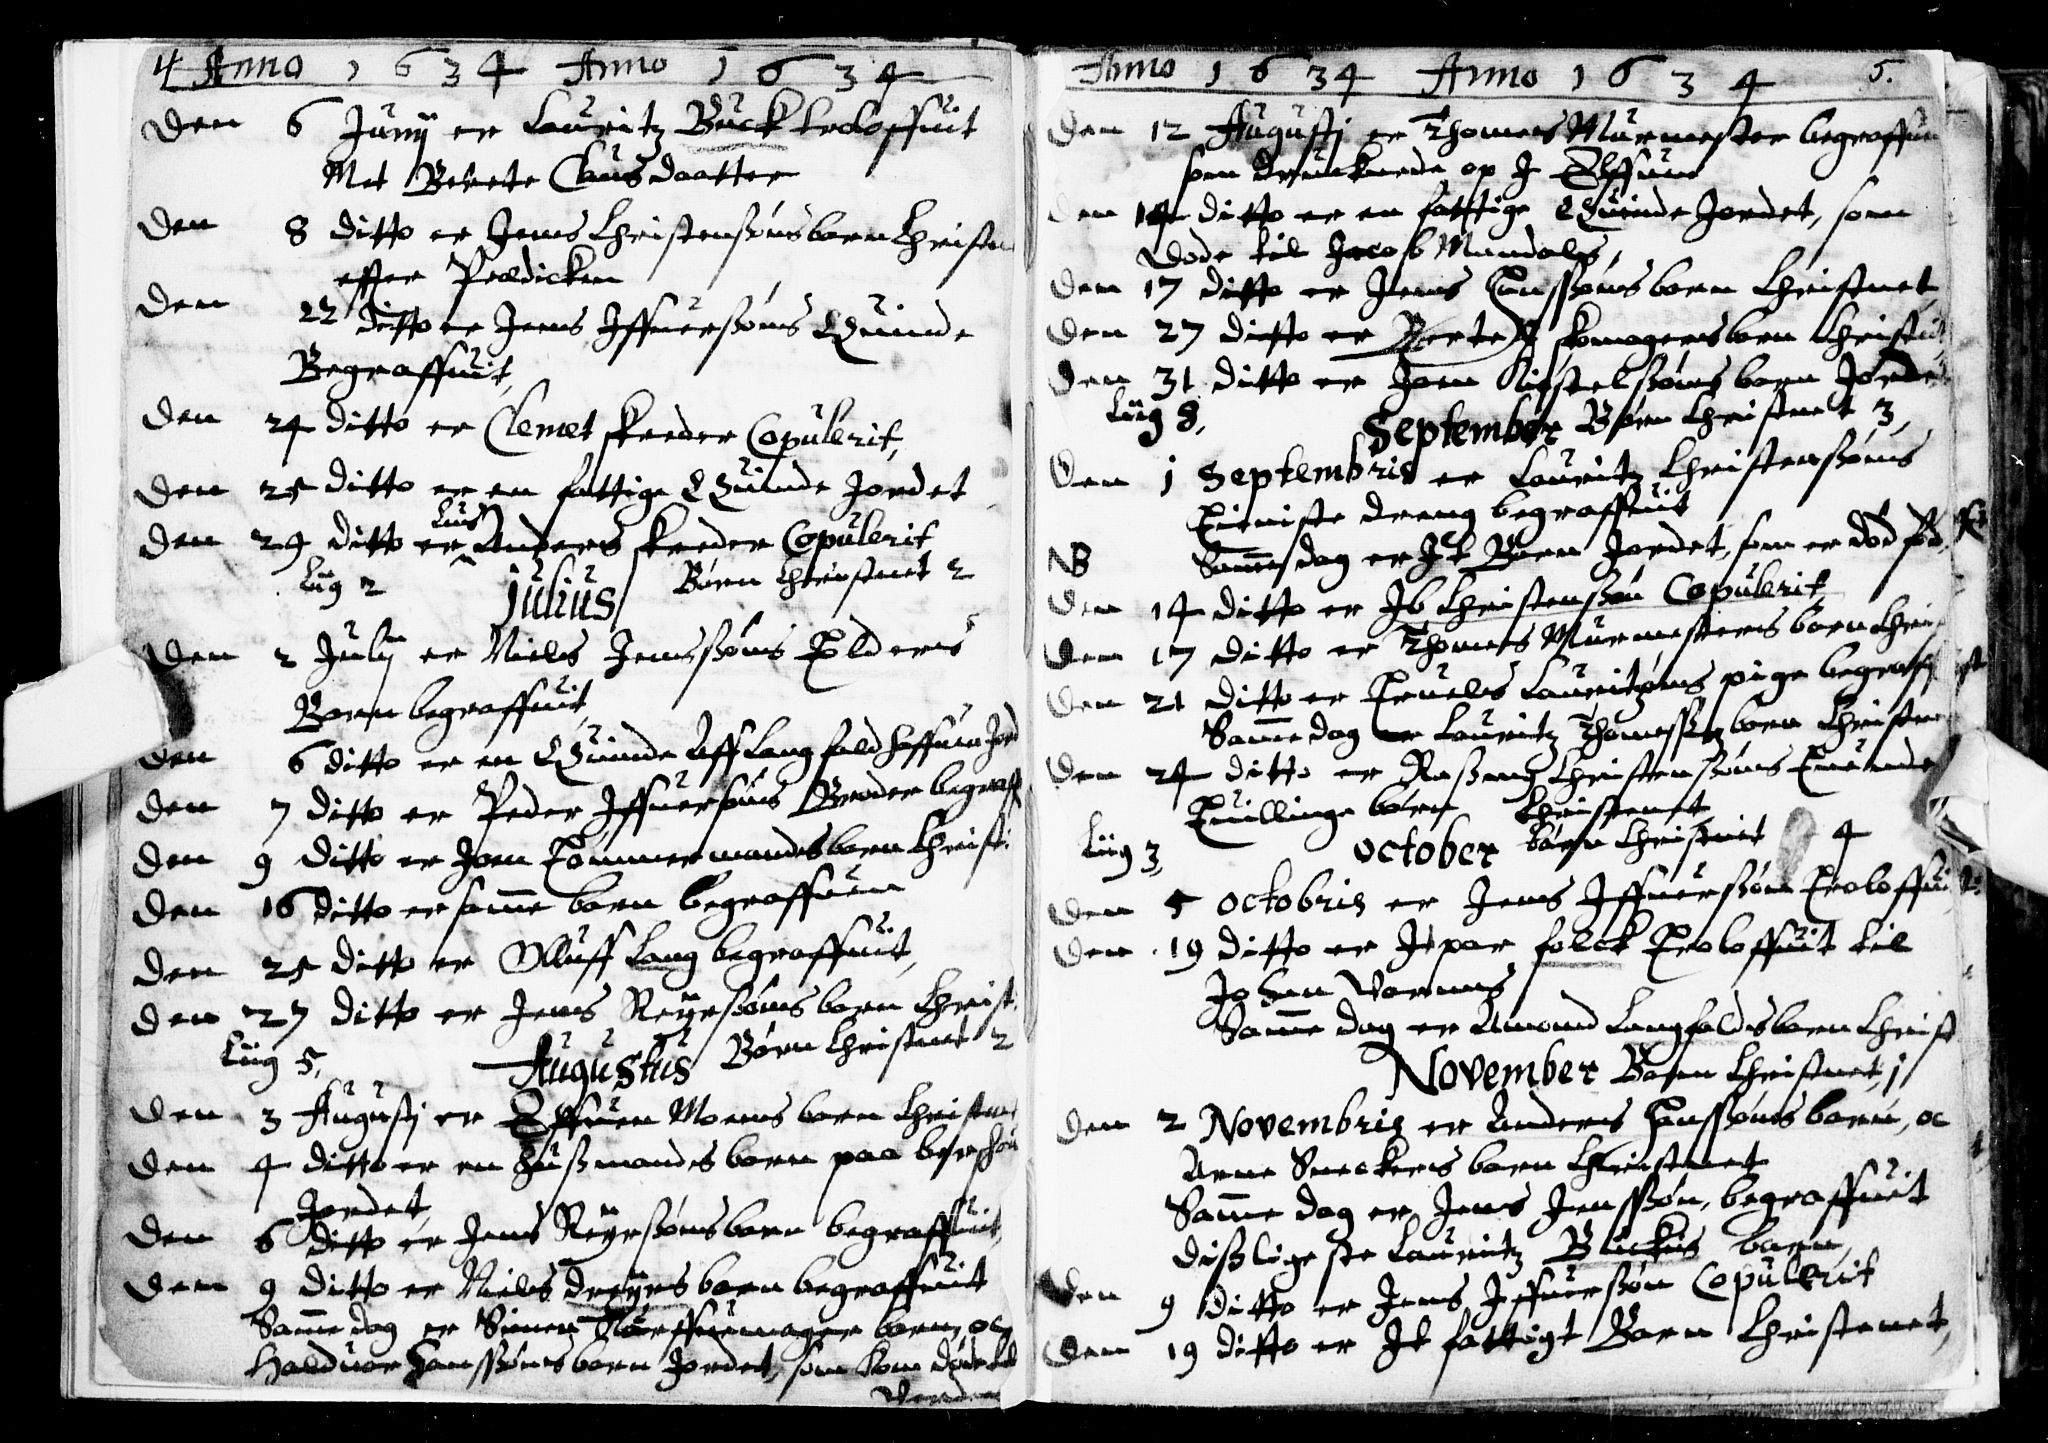 4 Anno 1634 Anno 1634
Den 6 Junij er Lauritz Buck troloffuit
Met Berete Clausdaatter
Den 8 ditto er Jens Christensøns barn Christn
effter Predicken
Den 22 ditto er Jens Iffuersøns Quinde
Begraffuit,
Den 24 ditto er Clemet skreder Copulerit,
Den 25 ditto er en fattige Quinde Jordet
Den 29 ditto er Anders skreder Copulerit
Liig 2 Julius Børn Christnet 2
Den 2 July er Niels Jenssøns Elders
Barn begraffuit,
Den 6 ditto er en Quinde Aff Langfald haffuen Jord
Den 7 ditto er Peder Iffuersøns Broder begraff
Den 9 ditto er Joen Tømmermands barn Christ
Den 16 ditto er samme barn begraffuen
Den 25 ditto er Olluff Lang begraffuit,
Den 27 ditto er Jens Reyersøns barn Christ.
Liig 5, Augustus Børn Christnet 2
Den 3 Augustj er Effuen Moens barn Christnet
Den 4 ditto er en Hußmands barn paa
Jordet
Den 6 ditto er Jens Reyersøns barn begraffuit,
Den 9 ditto er Niels Dreyers barn begraffuit
Samme dag er Simen barn, oc
Halduor Hanssøns barn Jordet, som kom døde til
Verden
Anno 1634 Anno 1634 5.
Den 12 Augustj er Thomes Murmester begraffuen
som drucknede op J Elffuen
Den 14 ditto er en fattige Quinde Jordet, som
døde til Jacob Mandals,
Den 17 ditto er Jens Hanssøns barn Christnet
Den 27 ditto er Bertell skomagers barn Christnit
Den 31 ditto er Joen Kiestelssøns barn Jordet
Liig 8, September Børn Christnet 3,
Den 1 Septembris er Lauritz Christenssøns
Tieniste dreng begraffuit
NB Samme dag er Jt Barn Jordet, som er død fød.
Den 14 ditto er Jb Christenssøn Copulerit
Den 17 ditto er Thomes Murmesters barn Chri
Den 21 ditto er Truels Lauritzøns pige begraff
Samme dag er Lauritz Thomessøns barn Christne
Den 24 ditto er Rasmus Christenssøns Tuende
Tuillinge børn Christenet
Liig 3, October børn Christnet 4
Den 5 Octobris er Jens Iffuerssøn Troloffuit
Den 19 ditto er Jt par folck Troloffuit til
Johan
Samme dag er Amond Langfalds barn Christ
November Børn Christnet, 1
Den 2 Novembris er Anders Hanssøns barn, oc
Arne Sneckers barn Christnet
Samme dag er Jens Jenssøn, begraffuit
dißligeste Lauritz Buckus barn,
Den 9 ditto er Jens Iffuerssøn Copulerit
Den 19 ditto er Jt fattigt Barn Christenet,